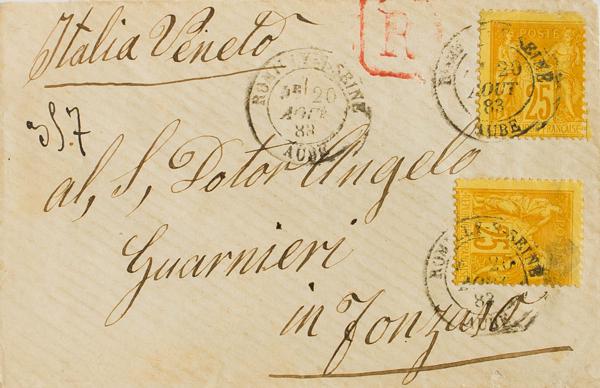 Italia Veneto
R
357
al, S, Dotor Angelo
Guarnieri
in Fonzaso
ROMILLY-S-SEINE
20
AOUT
83
AUBE
POSTE
25
FRANÇAISE
ROMILLY-S-SEINE
20
AOUT
83
AUBE
25
ROMILLY-S-SEINE
20
AOUT
83
AUBE